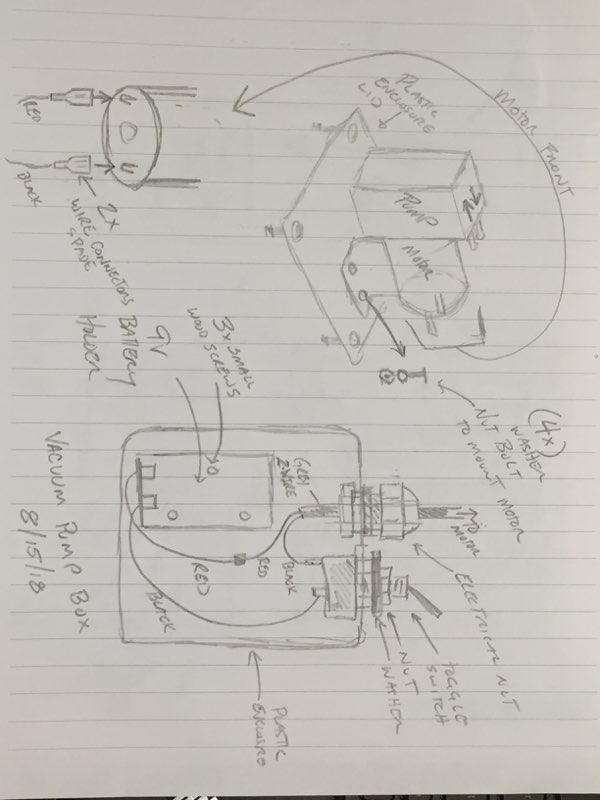 VACUUM PUMP BOX
8/15/18
MOTOR FRONT
PLASTIC
ENCLOSURE
LID
PUMP
MOTOR
RED
BLACK
2X
WIRE CONNECTORS
SPADE
(4X)
WASHER
NUT BOLT
TO MOUNT MOTOR
9V
BATTERY
HOLDER
3X SMALL
WOOD SCREWS
2 WIRE
TO
MOTOR
ELECTRICAL NUT
TOGGLE
SWITCH
NUT
WASHER
RED
RED
BLACK
BLACK
PLASTIC
ENCLOSURE